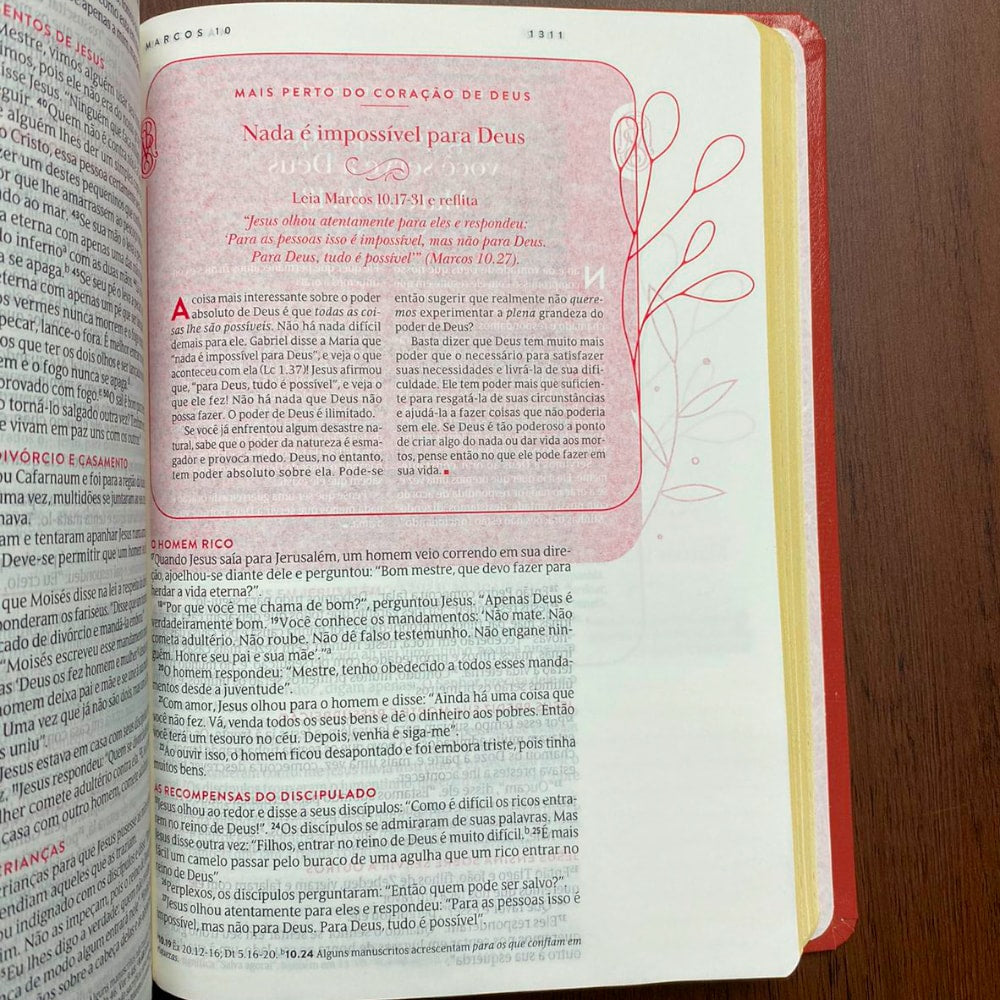 ENTOS DE JESUS
Mestre, vimos alguém usar seu
imos, pois ele não era do nosso
isse Jesus. "Ninguém que
guir. 40Quem não é contra
e alguém lhes der um simples
o Cristo, essa pessoa certamente
zer um destes pequeninos que
or que lhe amarrassem ao pescoço
do ao mar. 43Se sua mão o leva a
a eterna com apenas uma das
o infernoa com as duas mãos.
se apaga.b 45Se seu pé o leva a
terna com apenas um pé que ser
os vermes nunca morrem e o fogo
pecar, lance-o fora. É melhor
os que ter os dois olhos e ser lançado
em e o fogo nunca se apaga.
provado com fogo. 50O sal é bom
torná-lo salgado outra vez? Tenham
e vivam em paz uns com os outros".
DIVÓRCIO E CASAMENTO
ou Cafarnaum e foi para a região da
uma vez, multidões se juntaram
nava.
am e tentaram apanhar Jesus
Deve-se permitir que um homem
que Moisés disse na lei a respeito
ponderam os fariseus. "Disse que
cado de divórcio e mandá-la embora
"Moisés escreveu esse mandamento
as 'Deus os fez homem e mulher'
homem deixa pai e mãe e se une
Uma vez que já não são dois, mas
s uniu".
Jesus estava em casa com seus discípulos
z. 11Jesus respondeu: "Quem se
lher comete adultério contra ela.
casa com outro homem, comete
RIANÇAS
rianças para que Jesus pusesse
endiam aqueles que as traziam.
ou indignado com os discípulos e
im. Não as impeçam, pois o reino
Eu lhes digo a verdade: quem
ança de modo algum entrará nele
ãos sobre a cabeça delas e
MARCOS 10
1311
MAIS PERTO DO CORAÇÃO DE DEUS
Nada é impossível para Deus
Leia Marcos 10.17-31 e reflita
"Jesus olhou atentamente para eles e respondeu:
'Para as pessoas isso é impossível, mas não para Deus.
Para Deus, tudo é possível'" (Marcos 10.27).
A coisa mais interessante sobre o poder
absoluto de Deus é que todas as coi-
sas lhe são possíveis. Não há nada difícil
demais para ele. Gabriel disse a Maria que
"nada é impossível para Deus", e veja o que
aconteceu com ela (Lc 1.37)! Jesus afirmou
que, "para Deus, tudo é possível", e veja o
que ele fez! Não há nada que Deus não
possa fazer. O poder de Deus é ilimitado.
Se você já enfrentou algum desastre na-
tural, sabe que o poder da natureza é esma-
gador e provoca medo. Deus, no entanto,
tem poder absoluto sobre ela. Pode-se
então sugerir que realmente não quere-
mos experimentar a plena grandeza do
poder de Deus?
Basta dizer que Deus tem muito mais
poder que o necessário para satisfazer
suas necessidades e livrá-la de sua difi-
culdade. Ele tem poder mais que suficien-
te para resgatá-la de suas circunstâncias
e ajudá-la a fazer coisas que não poderia
sem ele. Se Deus é tão poderoso a ponto
de criar algo do nada ou dar vida aos mor-
tos, pense então no que ele pode fazer em
sua vida.
O HOMEM RICO
17Quando Jesus saía para Jerusalém, um homem veio correndo em sua dire-
ção, ajoelhou-se diante dele e perguntou: "Bom mestre, que devo fazer para
herdar a vida eterna?".
18"Por que você me chama de bom?", perguntou Jesus. "Apenas Deus é
verdadeiramente bom. 19Você conhece os mandamentos: 'Não mate. Não
cometa adultério. Não roube. Não dê falso testemunho. Não engane nin-
guém. Honre seu pai e sua mãe'."a
20O homem respondeu: "Mestre, tenho obedecido a todos esses manda-
mentos desde a juventude".
21Com amor, Jesus olhou para o homem e disse: "Ainda há uma coisa que
você não fez. Vá, venda todos os seus bens e dê o dinheiro aos pobres. Então
você terá um tesouro no céu. Depois, venha e siga-me".
22Ao ouvir isso, o homem ficou desapontado e foi embora triste, pois tinha
muitos bens.
AS RECOMPENSAS DO DISCIPULADO
23Jesus olhou ao redor e disse a seus discípulos: "Como é difícil os ricos entra-
rem no reino de Deus!". 24Os discípulos se admiraram de suas palavras. Mas
Jesus disse outra vez: "Filhos, entrar no reino de Deus é muito difícil.b 25É mais
fácil um camelo passar pelo buraco de uma agulha que um rico entrar no
reino de Deus".
26Perplexos, os discípulos perguntaram: "Então quem pode ser salvo?".
27Jesus olhou atentamente para eles e respondeu: "Para as pessoas isso é
impossível, mas não para Deus. Para Deus, tudo é possível".
a10.19 Êx 20.12-16; Dt 5.16-20. b10.24 Alguns manuscritos acrescentam para os que confiam em
riquezas.